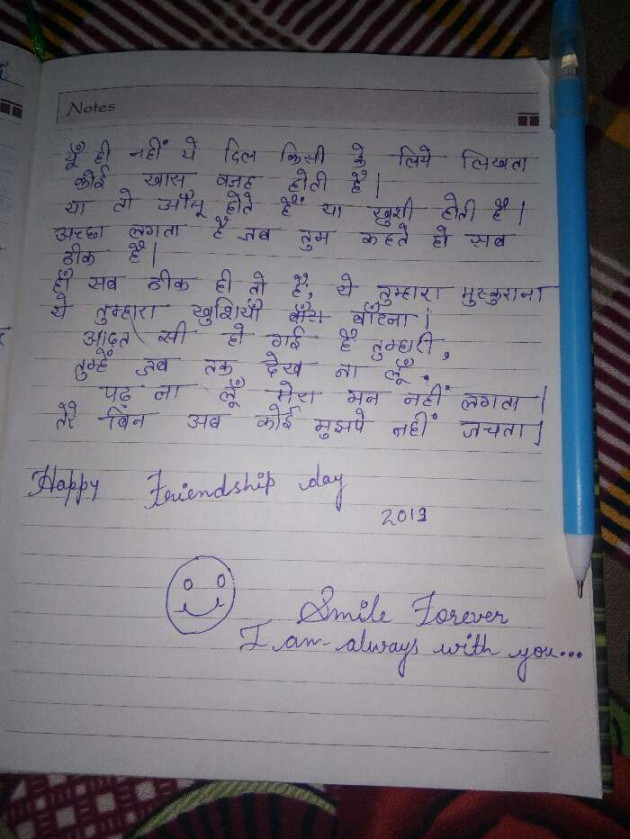 Notes
यूँ ही नहीं ये दिल किसी के लिये लिखता
कोई खास वजह होती है।
या तो आँसू होते हैं या खुशी होती है।
अच्छा लगता है जब तुम कहते हो सब
ठीक है।
हाँ सब ठीक ही तो है, ये तुम्हारा मुस्कुराना
ये तुम्हारा खुशियाँ बाँटना।
आदत सी हो गई है तुम्हारी,
तुम्हें जब तक देख ना लूँ,
पढ़ ना लूँ मेरा मन नहीं लगता।
तेरे बिन अब कोई मुझपे नहीं जचता।
Happy Friendship day
2019
Smile Forever
I am always with you...